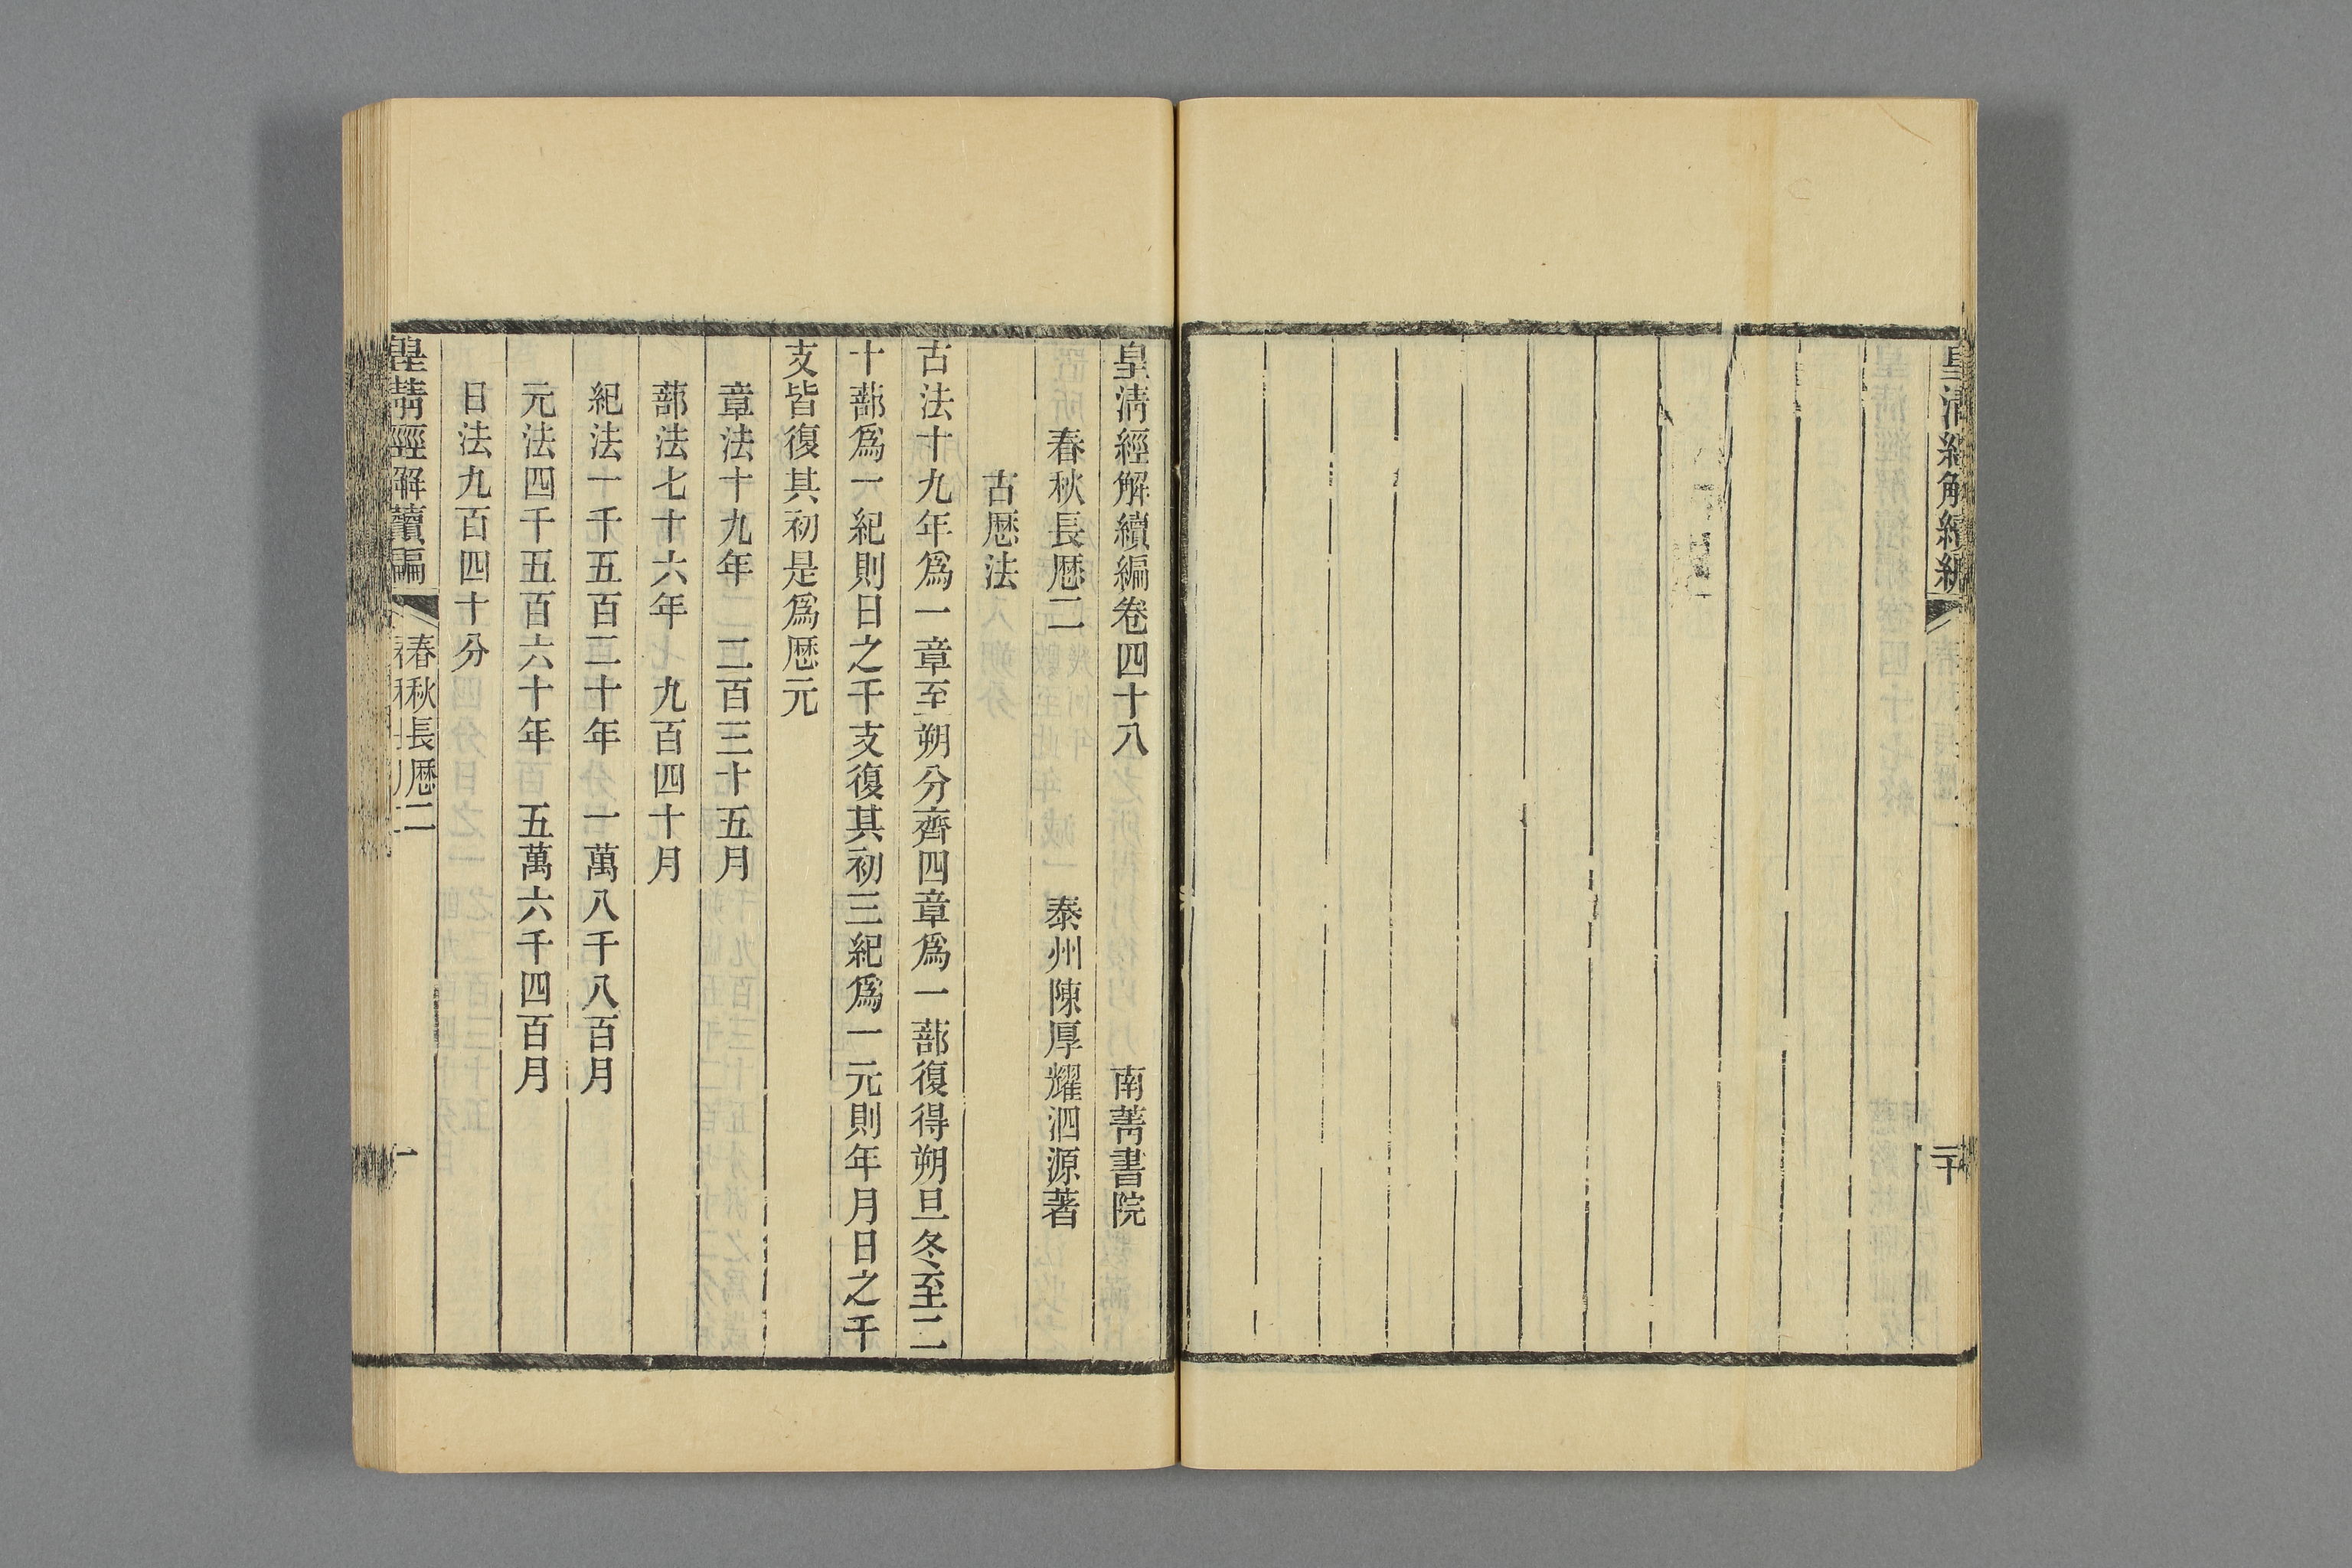 皇清經解續編
二十
皇清經解續編卷四十八 南菁書院
春秋長厯二 泰州陳厚耀泗源著
古厯法
古法十九年爲一章至朔分齊四章爲一蔀復得朔旦冬至二
十蔀爲一紀則日之干支復其初三紀爲一元則年月日之干
支皆復其初是爲厯元
章法十九年 二百三十五月
蔀法七十六年 九百四十月
紀法一千五百二十年 一萬八千八百月
元法四千五百六十年 五萬六千四百月
日法九百四十分
皇清經解續編
春秋長厯二
一